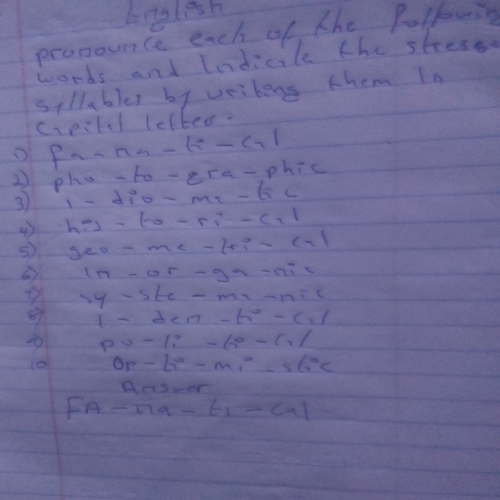 English
pronounce each of the Following
words and Indicate the stressed
syllables by writing them In
capital letter.
1) fa-na-ti-cal
2) pho-to-gra-phic
3) i-dio-ma-tic
4) his-to-ri-cal
5) geo-me-tri-cal
6) in-or-ga-nic
7) sy-ste-ma-nic
8) i-den-ti-cal
9) po-li-ti-cal
10 Op-ti-mi-stic
Answer
FA-na-ti-cal